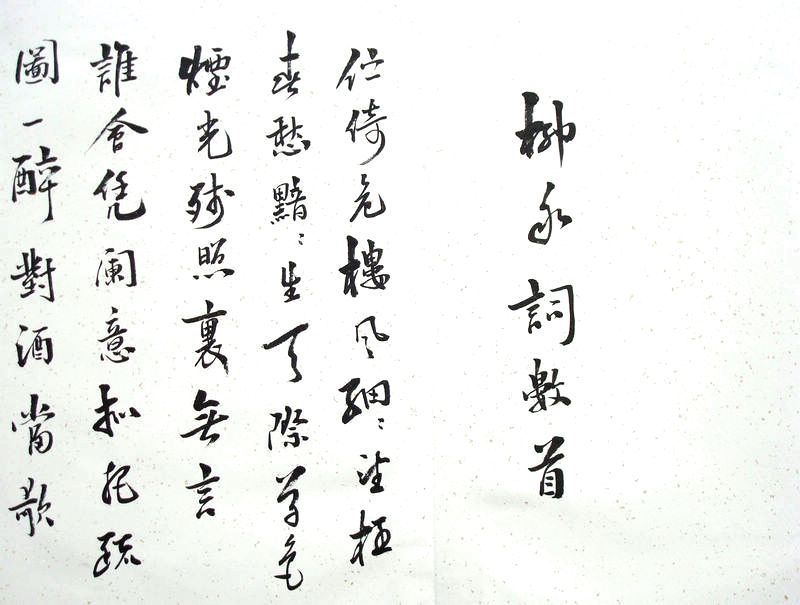 柳永詞數首
伫倚危樓風細〻望極
春愁黯〻生天際草色
煙光殘照裏無言
誰會凭阑意拟把疏
圖一醉對酒當歌